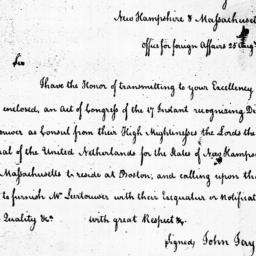 New Hampshire & Massachuset
Office for foreign Affairs 25 Augt
Sir
I have the Honor of transmitting to your Excellency
enclosed, an Act of Congress of the 17 Instant recognizing
as Consul from their High Mightinesses the Lords the
al of the United Netherlands for the States of New Hamps
Massachusetts to reside at Boston; and calling upon the
to furnish Mr. with their Exequatur or Notificat
Quality &c. with great Respect &c.
Signed John Jay